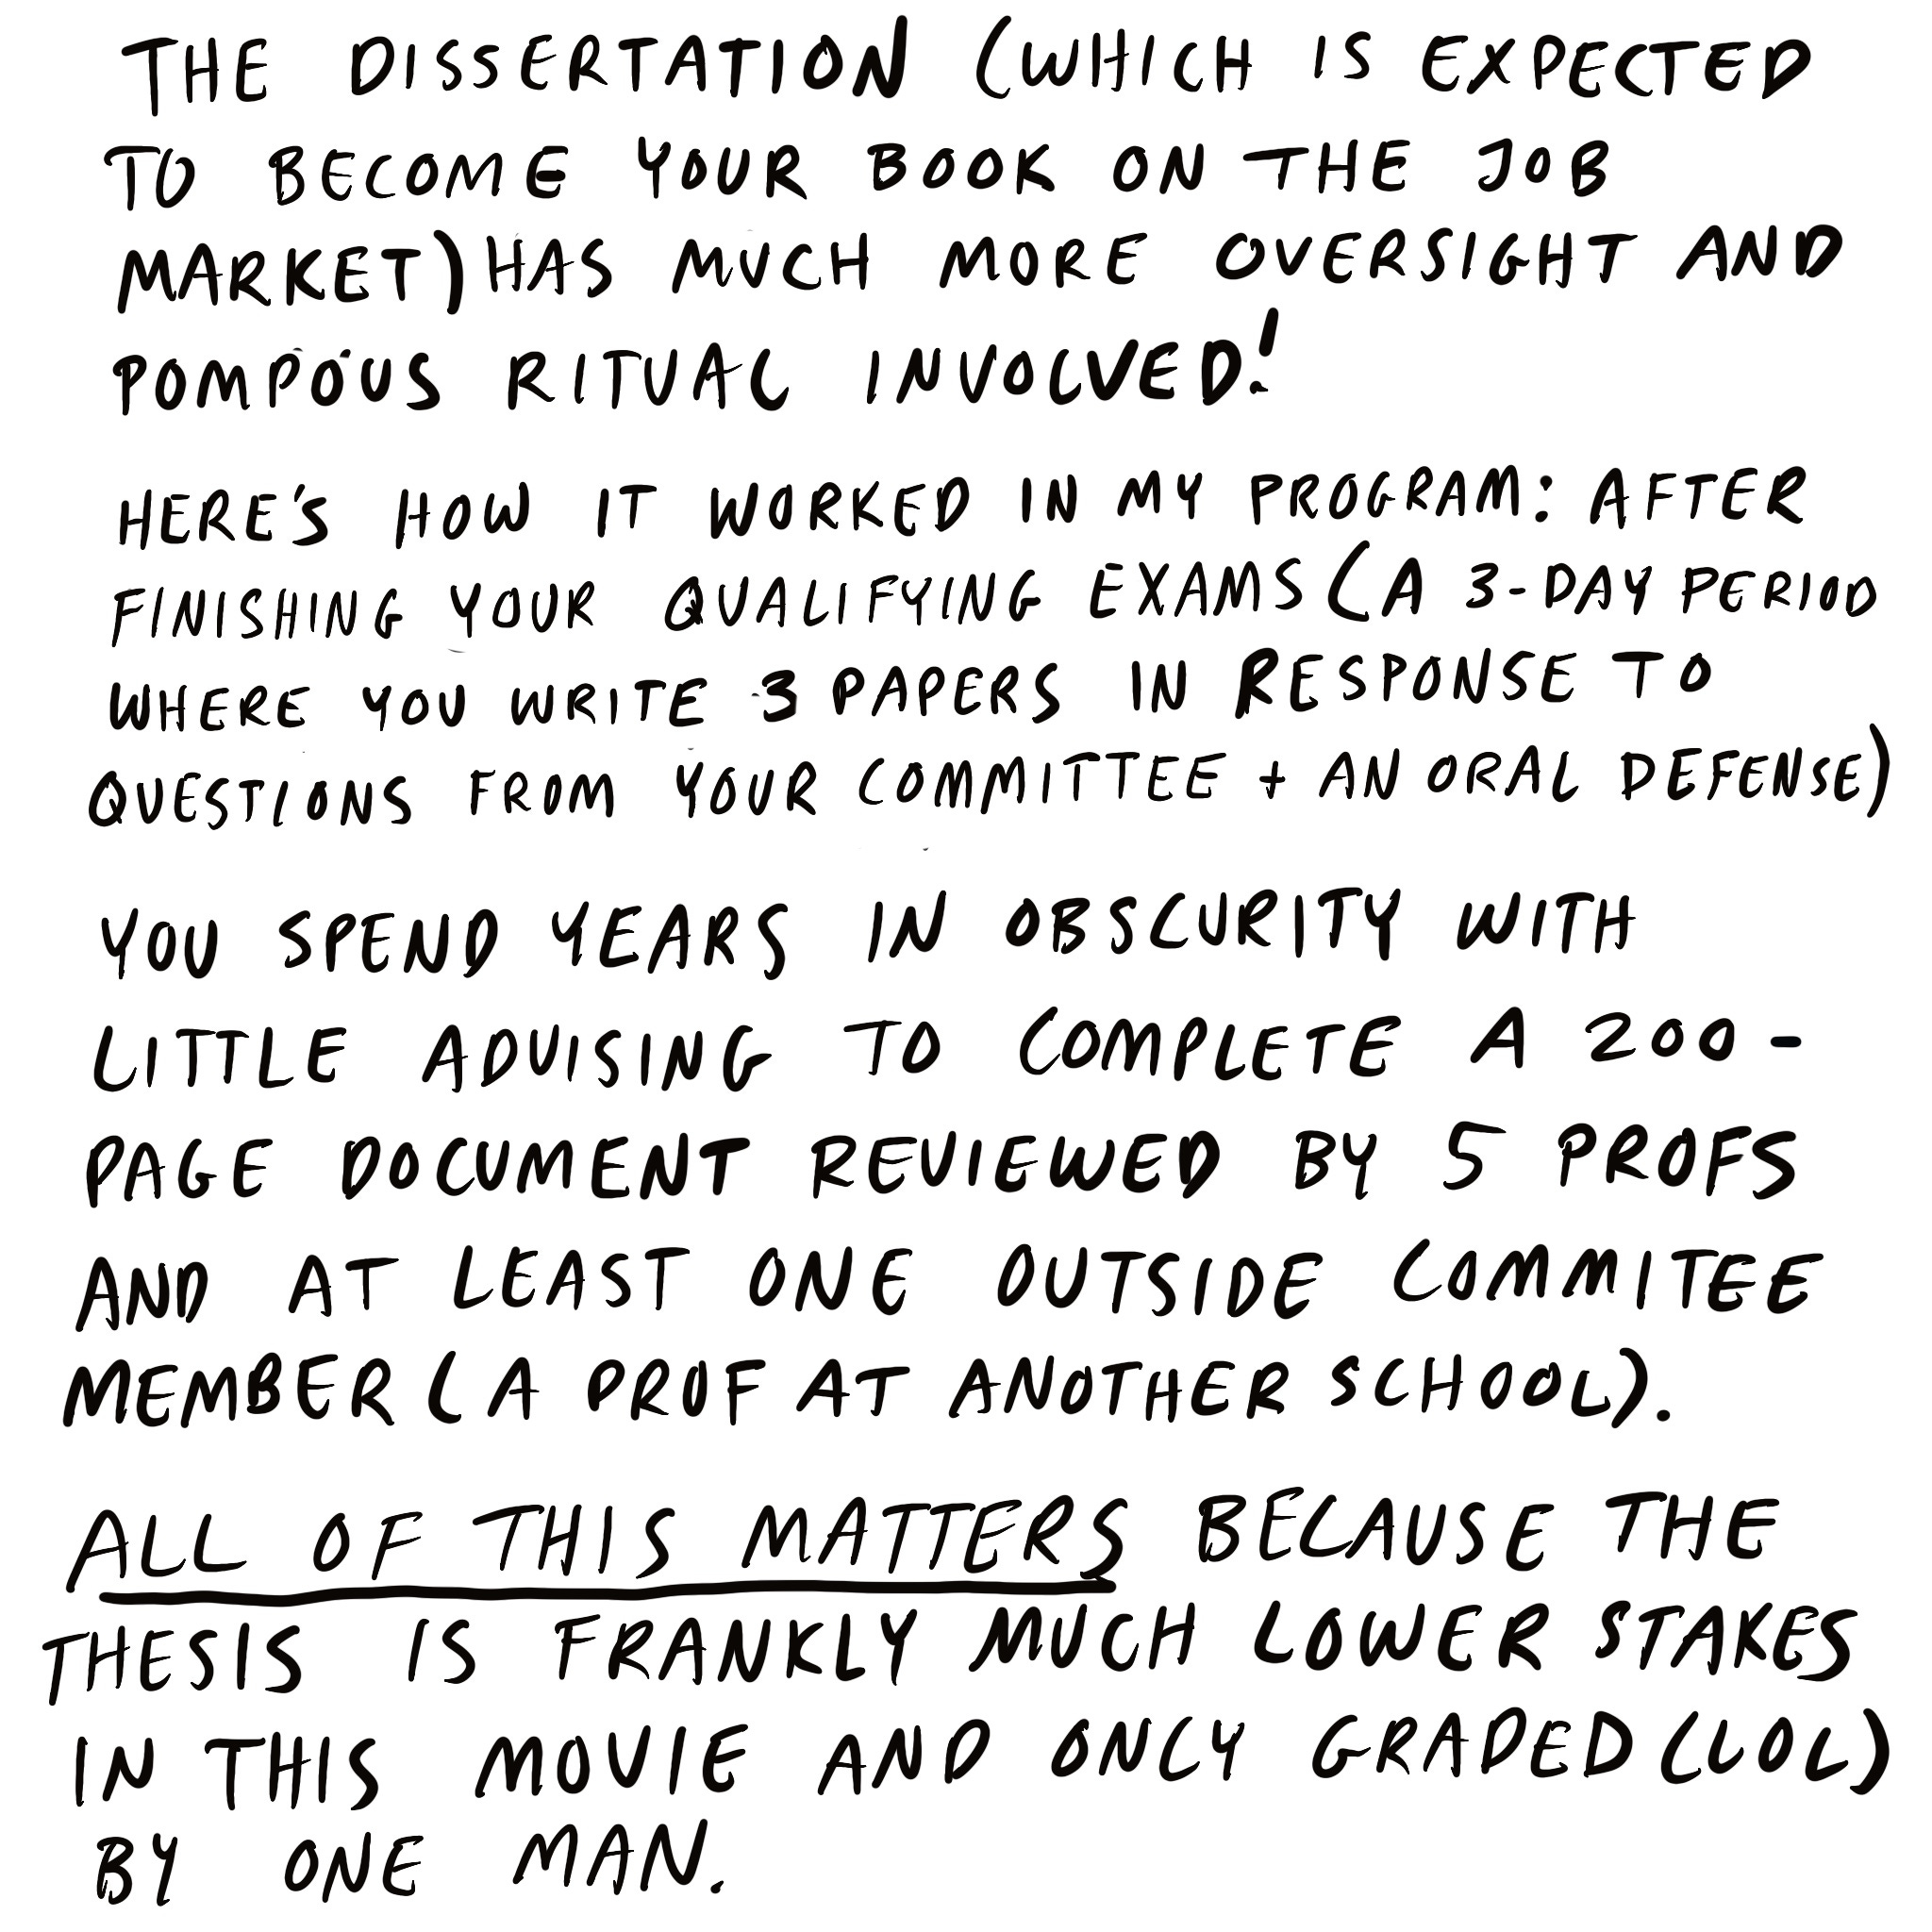 THE DISSERTATION (WHICH IS EXPECTED
TO BECOME YOUR BOOK ON THE JOB
MARKET) HAS MUCH MORE OVERSIGHT AND
POMPOUS RITUAL INVOLVED!
HERE'S HOW IT WORKED IN MY PROGRAM: AFTER
FINISHING YOUR QUALIFYING EXAMS (A 3-DAY PERIOD
WHERE YOU WRITE 3 PAPERS IN RESPONSE TO
QUESTIONS FROM YOUR COMMITTEE + AN ORAL DEFENSE)
YOU SPEND YEARS IN OBSCURITY WITH
LITTLE ADVISING TO COMPLETE A 200-
PAGE DOCUMENT REVIEWED BY 5 PROFS
AND AT LEAST ONE OUTSIDE COMMITEE
MEMBER (A PROF AT ANOTHER SCHOOL).
ALL OF THIS MATTERS BECAUSE THE
THESIS IS FRANKLY MUCH LOWER STAKES
IN THIS MOVIE AND ONLY GRADED (LOL)
BY ONE MAN.